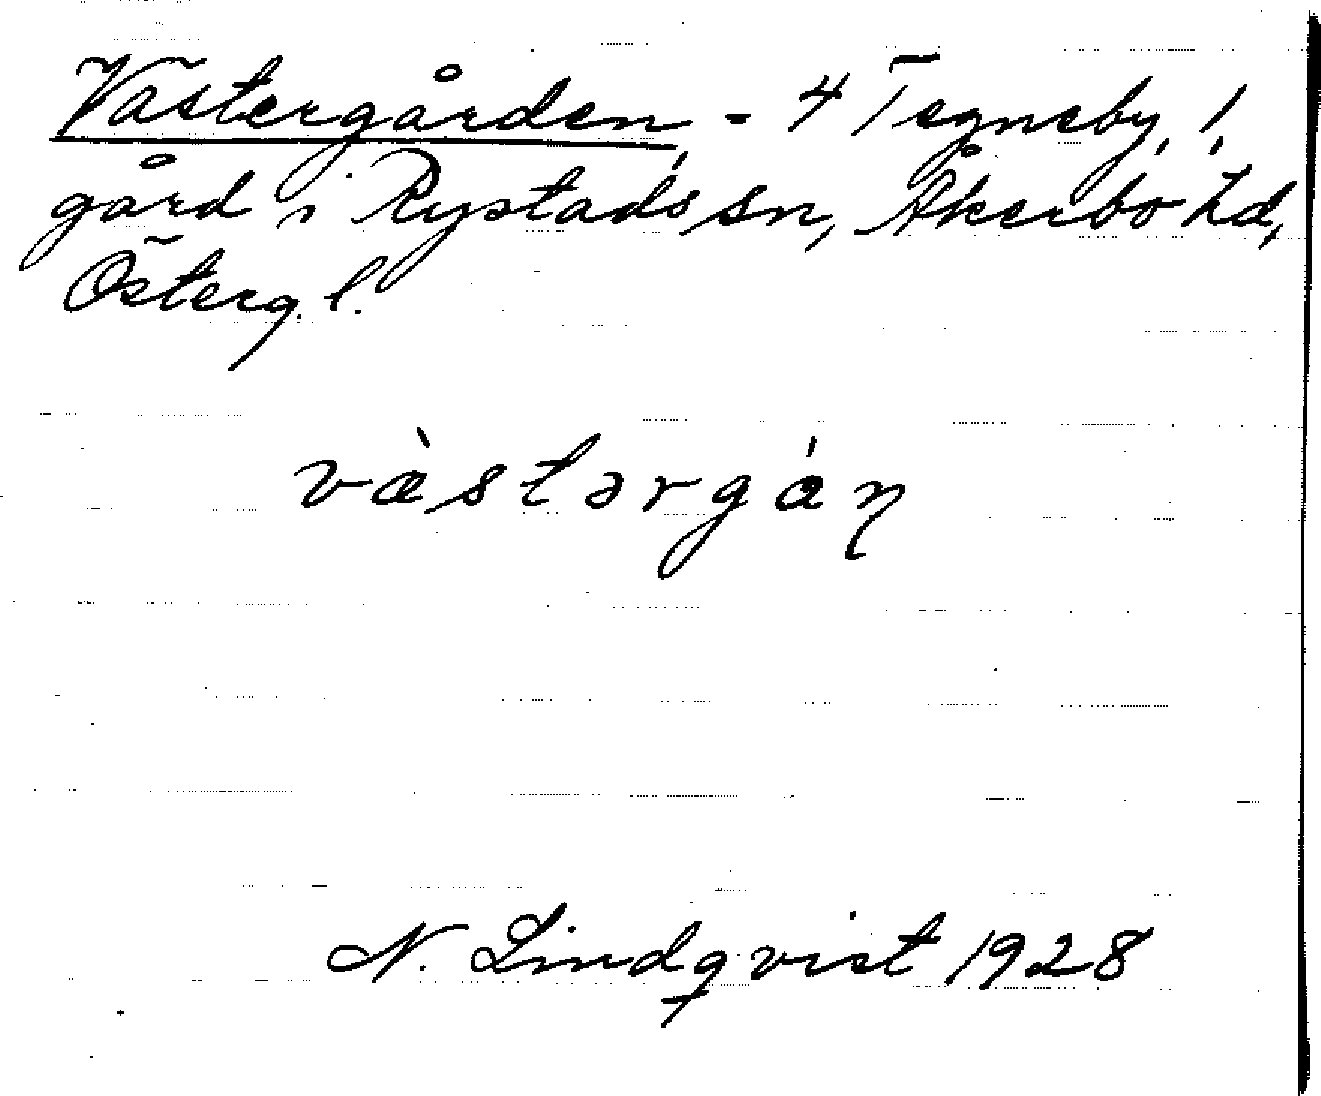 Västergården - 4 Tegneby, 1,
gård i Rystads sn, Åkerbo hd,
Österg. l.
væ̀stərgán
N. Lindqvist 1928